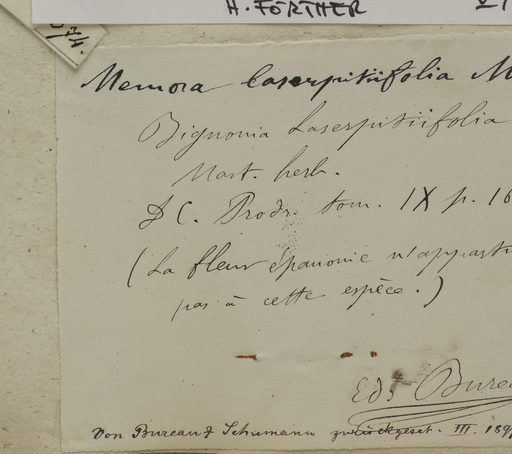 H. FÖRTHER
74.
Memora laserpitiifolia M
Bignonia Laserpitiifolia
Mart. herb.
DC. Prodr. tom. IX p. 16
(La fleur épanouie n'appartі
pas à cette espèce.)
Ed. Burea
Von Bureau & Schumann zurückgeset. III. 189